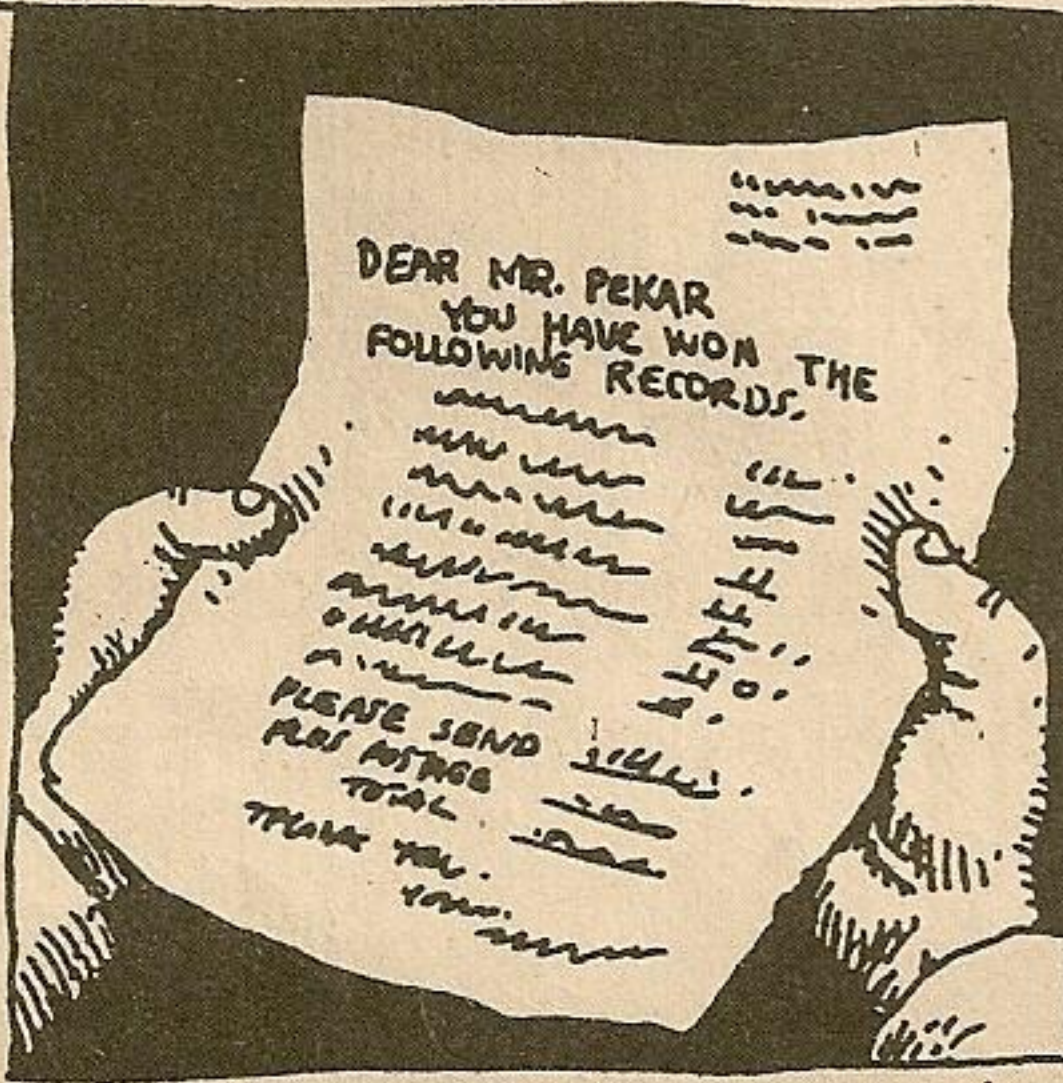 DEAR MR. PEKAR
YOU HAVE WON THE
FOLLOWING RECORDS.
PLEASE SEND
PLUS POSTAGE
TOTAL
THANK YOU.